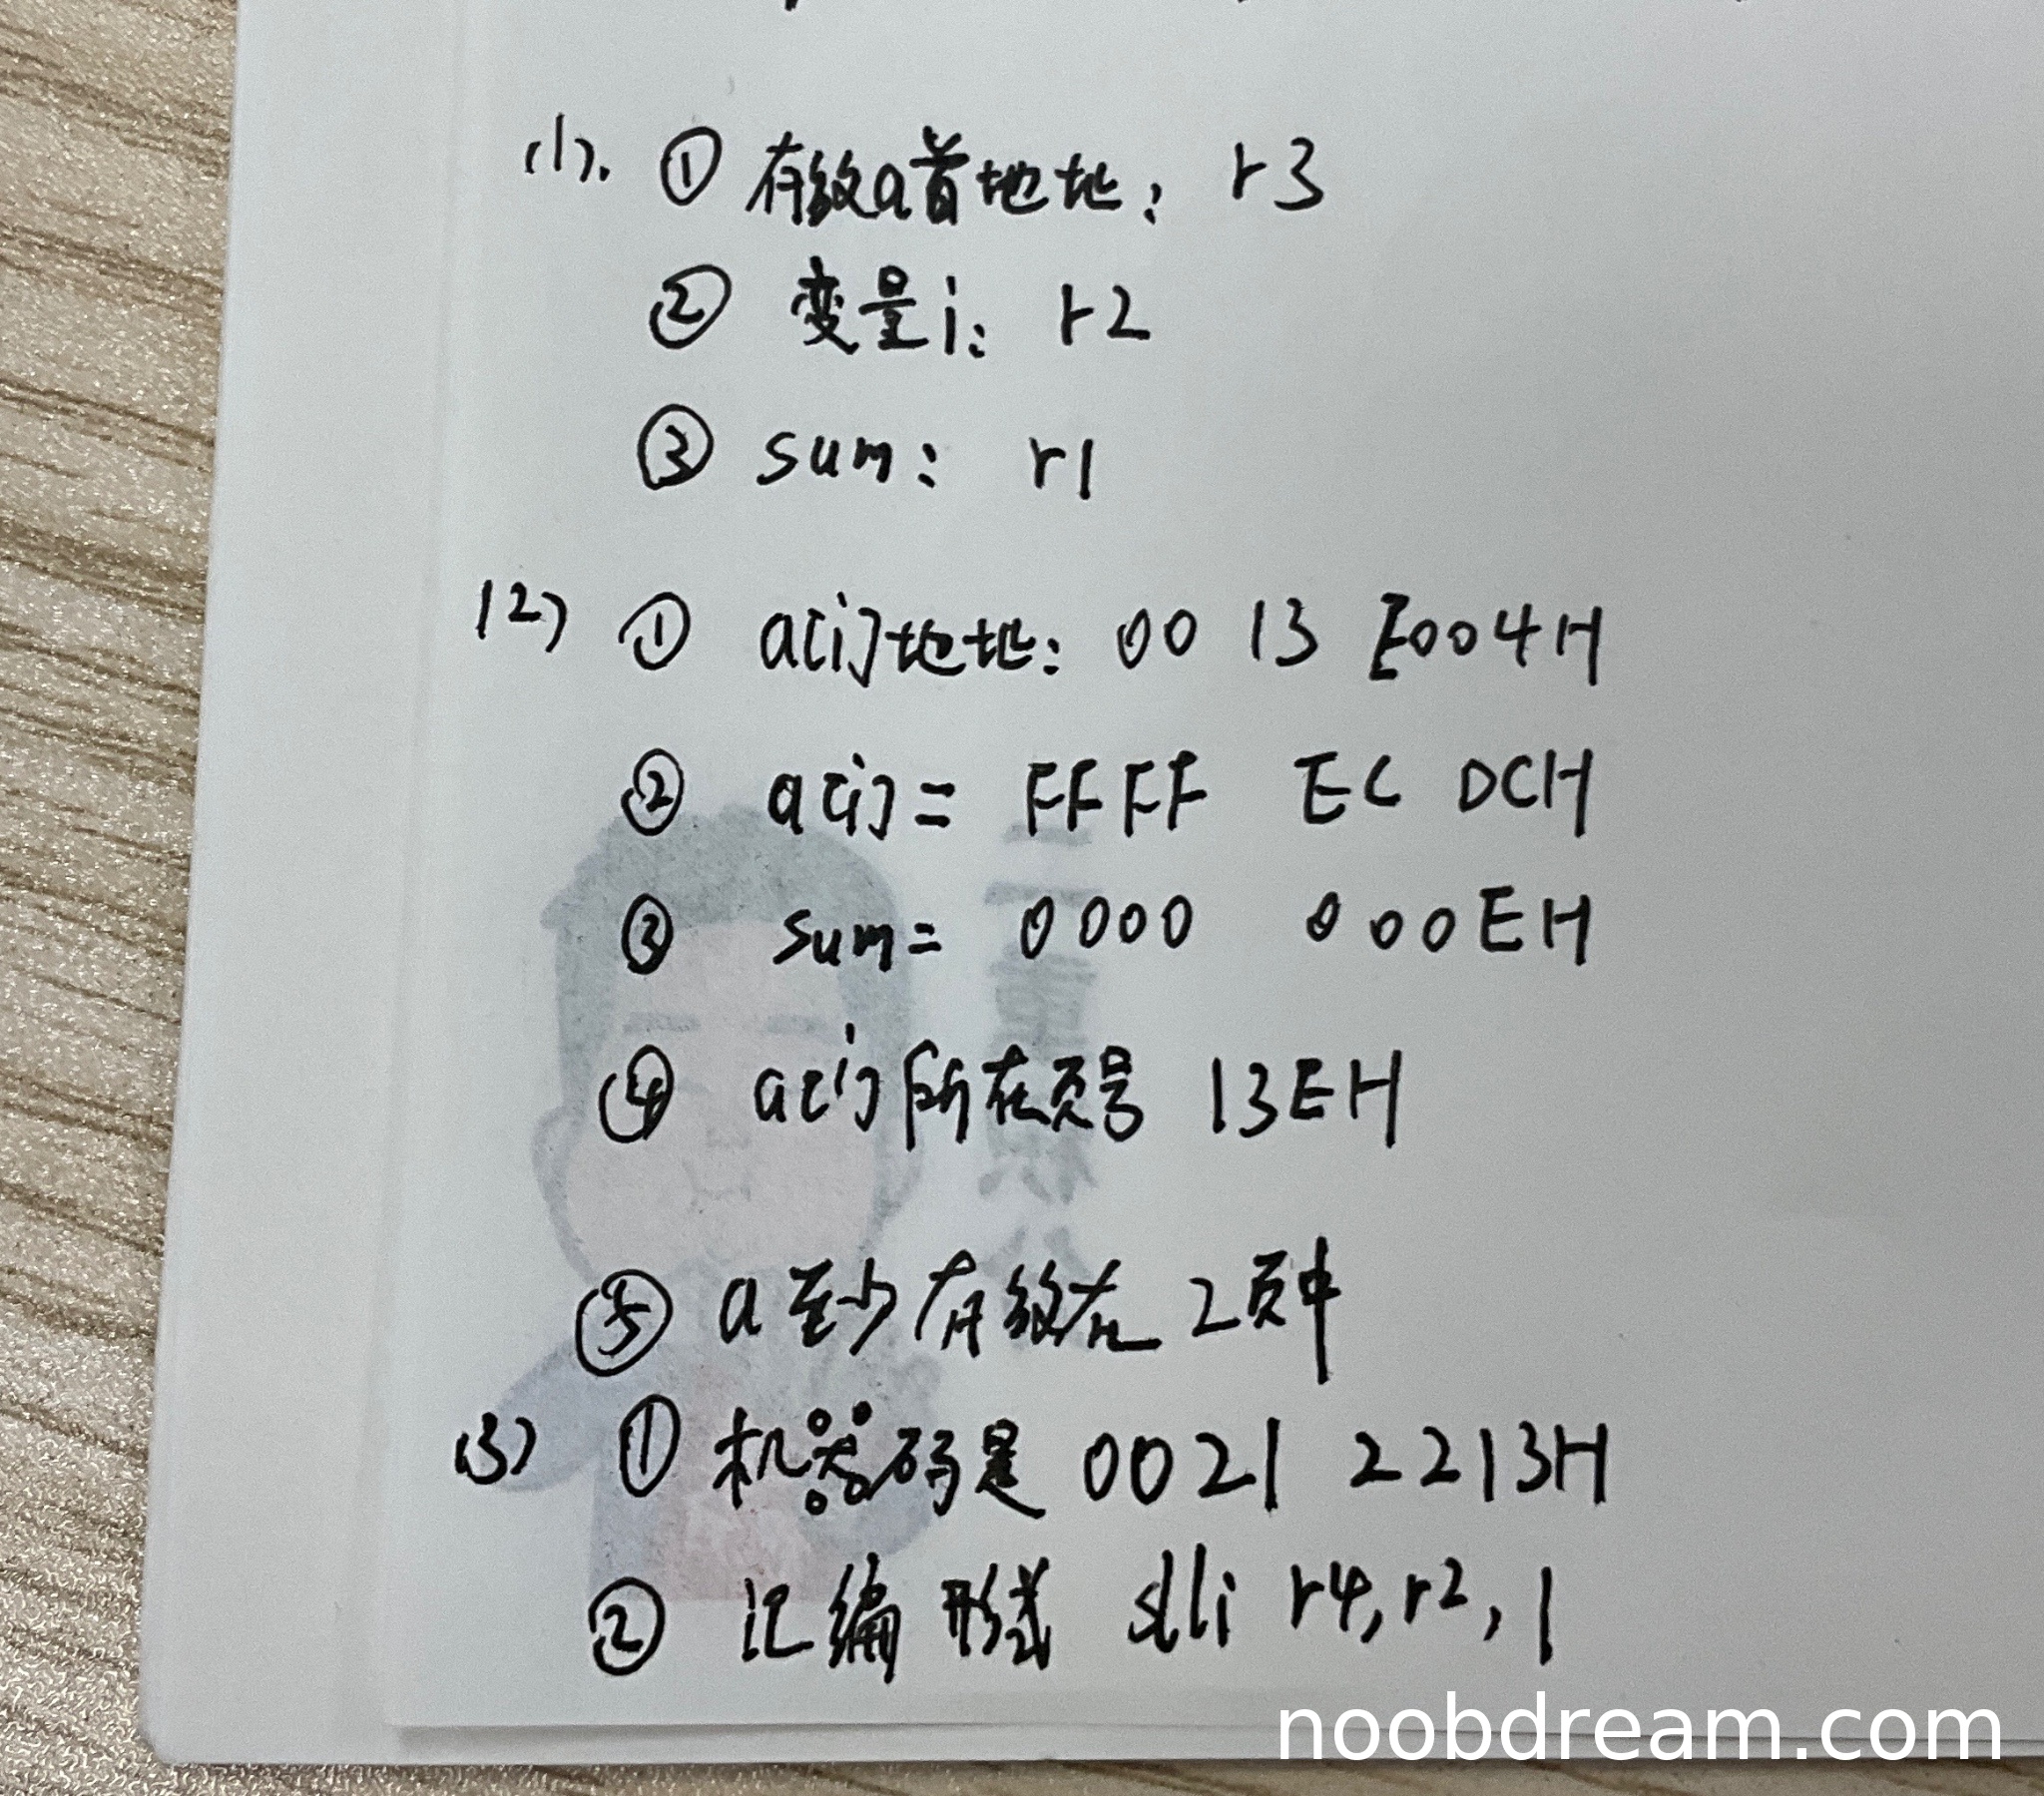 (1). ① 存放a首地址: r3
② 变量i: r2
③ sum: r1
(2) ① a[i]地址: 00 13 E004H
② a[i] = FFFF EC DCH
③ sum= 0000 000EH
④ a[i]所在页号 13EH
⑤ a至少存放在2页中
(3) ① 机器码是 0021 2213H
② 汇编形式 slli r4,r2,1
noobdream.com